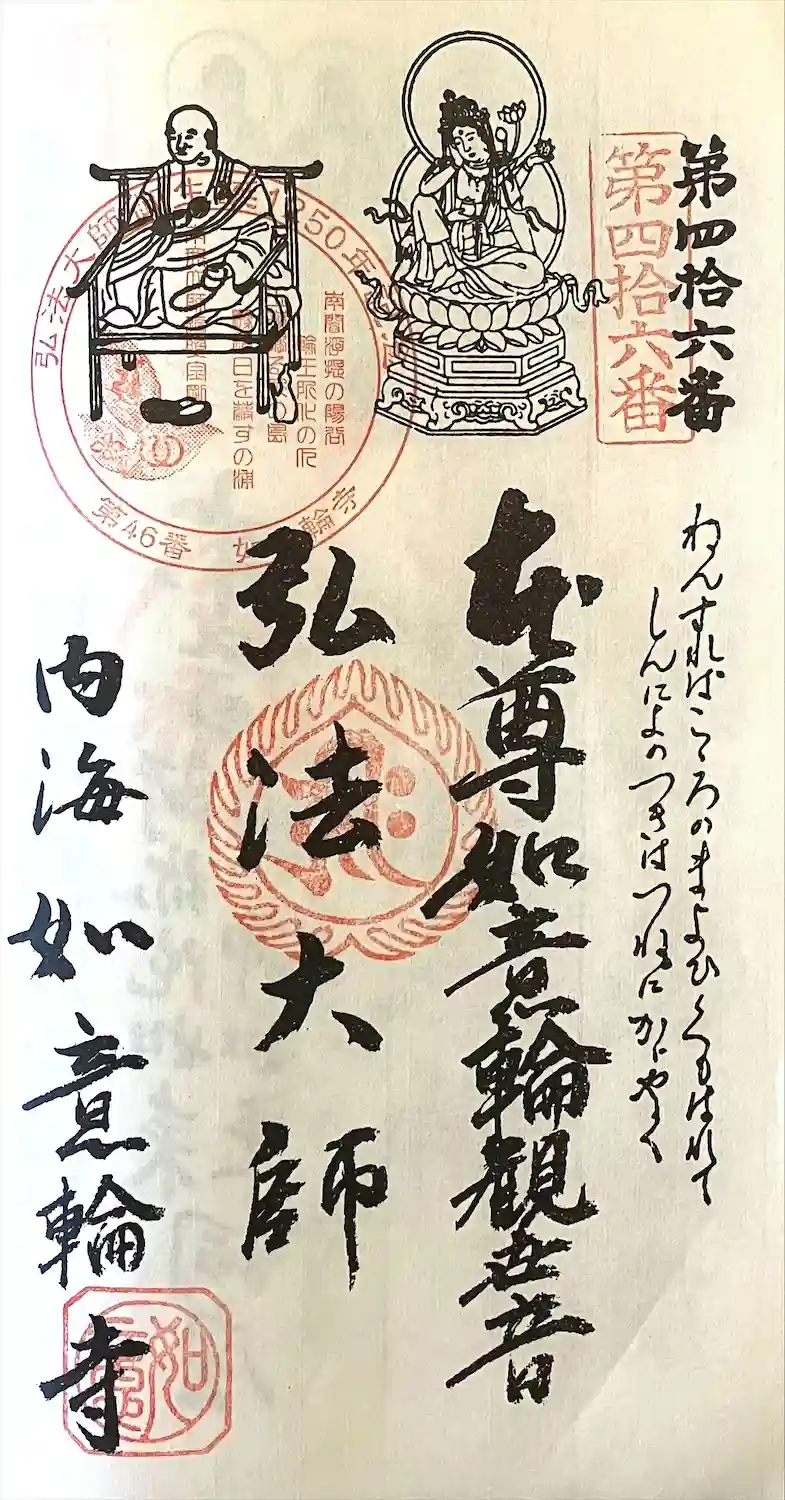 第四拾六番
第四拾六番
ねんすればこころのまよひくもはれて
しんによのつきはつねにかゝやく
本尊如意輪観世音
弘法大師
内海如意輪寺
弘法大師
1250年
南閻浮提の陽谷
輪王所化の下
第46番
輪寺
如意